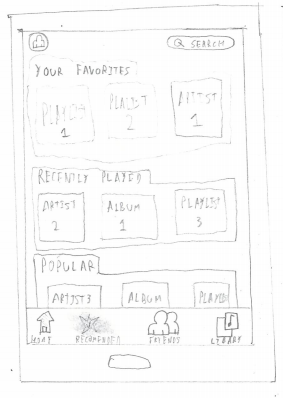 SEARCH
YOUR FAVORITES
PLAYLIST PLAYLIST ARTIST
1 2 1
RECENTLY PLAYED
ARTIST ALBUM PLAYLIST
2 1 3
POPULAR
ARTIST3 ALBUM
RECOMENDED FRIENDS LIBARY